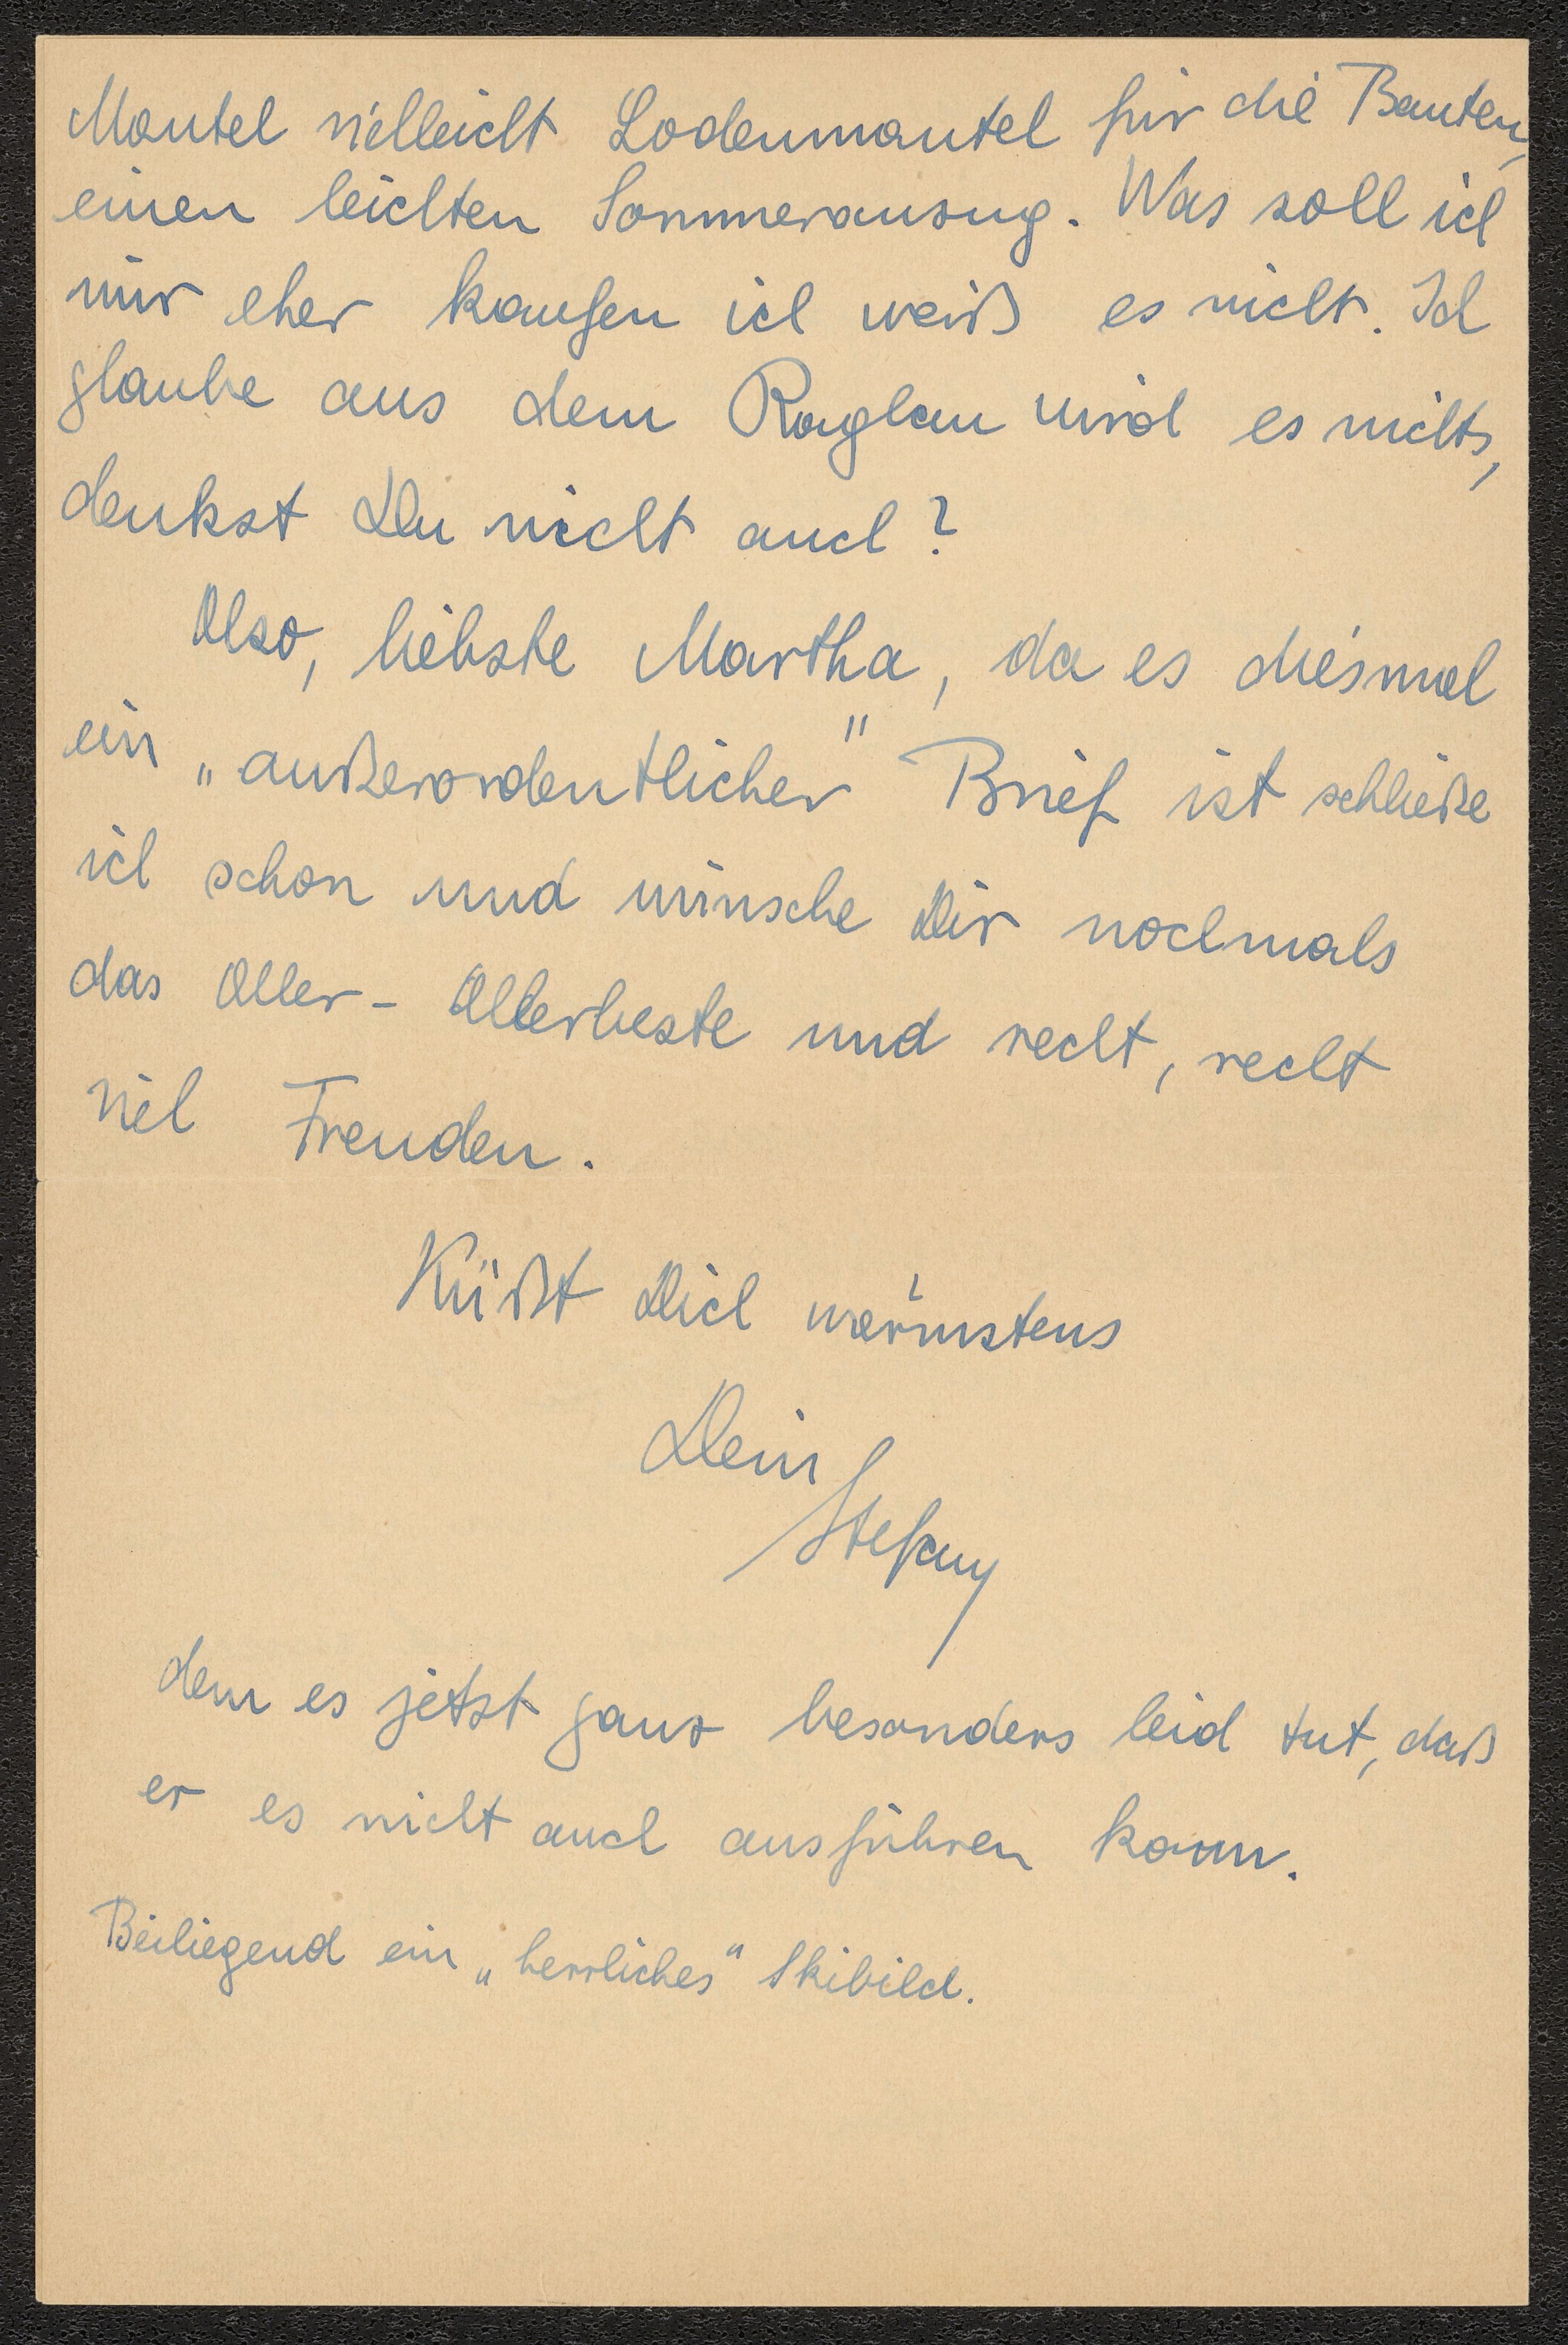 Mantel vielleicht Lodenmantel für die Bauten,
einen leichten Sommeranzug. Was soll ich
mir eher kaufen ich weiß es nicht. Ich
glaube aus dem Raglan wird es nichts,
denkst Du nicht auch?
Also, liebste Martha, da es diesmal
ein „außerordentlicher" Brief ist schließe
ich schon und wünsche Dir nochmals
das Aller- Allerbeste und recht, recht
viel Freuden.
Küßt Dich wärmstens
Dein
Stefany
dem es jetzt ganz besonders leid tut, daß
er es nicht auch ausführen kann.
Beiliegend ein „herrliches" Skibild.